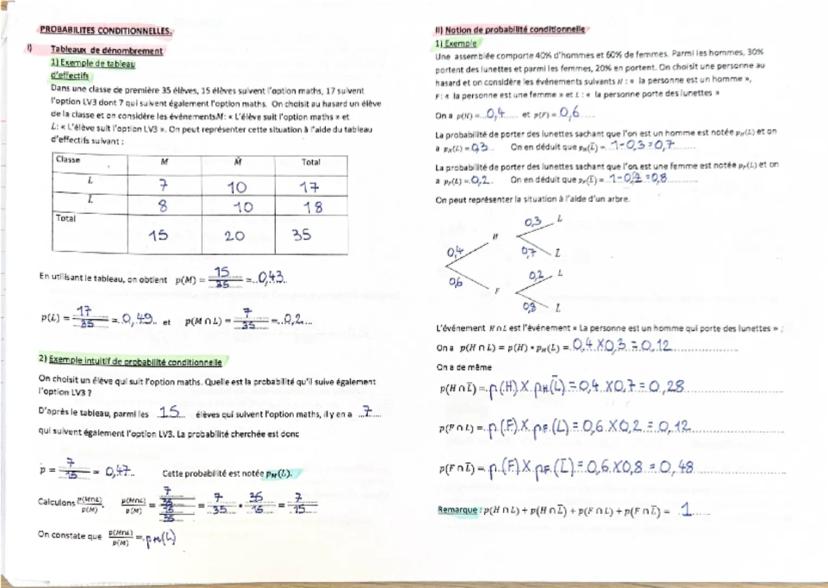 PROBABILITES CONDITIONNELLES.
I) Tableaux de dénombrement
1) Exemple de tableau
d'effectifs
Dans une classe de première 35 élèves, 15 élèves suivent l'option maths, 17 suivent
l'option LV3 dont 7 qui suivent également l'option maths. On choisit au hasard un élève
de la classe et on considère les événements M : « L'élève suit l'option maths » et
L : « L'élève suit l'option LV3 ». On peut représenter cette situation à l'aide du tableau
d'effectifs suivant :
Classe M M̄ Total
L 7 10 17
L̄ 8 10 18
Total 15 20 35
En utilisant le tableau, on obtient p(M) = 15/35 = 0,43
p(L) = 17/35 = 0,49 et p(M ∩ L) = 7/35 = 0,2
2) Exemple intuitif de probabilité conditionnelle
On choisit un élève qui suit l'option maths. Quelle est la probabilité qu'il suive également
l'option LV3 ?
D'après le tableau, parmi les 15 élèves qui suivent l'option maths, il y en a 7
qui suivent également l'option LV3. La probabilité cherchée est donc
p = 7/15 = 0,47 Cette probabilité est notée p_M(L).
Calculons p(M∩L)/p(M). p(M∩L)/p(M) = (7/35)/(15/35) = 7/35 × 35/15 = 7/15
On constate que p(M∩L)/p(M) = p_M(L)
II) Notion de probabilité conditionnelle
1) Exemple
Une assemblée comporte 40% d'hommes et 60% de femmes. Parmi les hommes, 30%
portent des lunettes et parmi les femmes, 20% en portent. On choisit une personne au
hasard et on considère les événements suivants H : « la personne est un homme »,
F : « la personne est une femme » et L : « la personne porte des lunettes »
On a p(H) = 0,4 et p(F) = 0,6
La probabilité de porter des lunettes sachant que l'on est un homme est notée p_H(L) et on
a p_H(L) = 0,3 On en déduit que p_H(L̄) = 1-0,3=0,7
La probabilité de porter des lunettes sachant que l'on est une femme est notée p_F(L) et on
a p_F(L) = 0,2 On en déduit que p_F(L̄) = 1-0,2=0,8
On peut représenter la situation à l'aide d'un arbre.
0,3 L
0,4 H
0,7 L̄
0,2 L
0,6 F
0,8 L̄
L'événement H ∩ L est l'événement « La personne est un homme qui porte des lunettes » :
On a p(H ∩ L) = p(H) × p_H(L) = 0,4 X 0,3 = 0,12
On a de même
p(H ∩ L̄) = p(H) X p_H(L̄) = 0,4 X 0,7 = 0,28
p(F ∩ L) = p(F) X p_F(L) = 0,6 X 0,2 = 0,12
p(F ∩ L̄) = p(F) X p_F(L̄) = 0,6 X 0,8 = 0,48
Remarque : p(H ∩ L) + p(H ∩ L̄) + p(F ∩ L) + p(F ∩ L̄) = 1